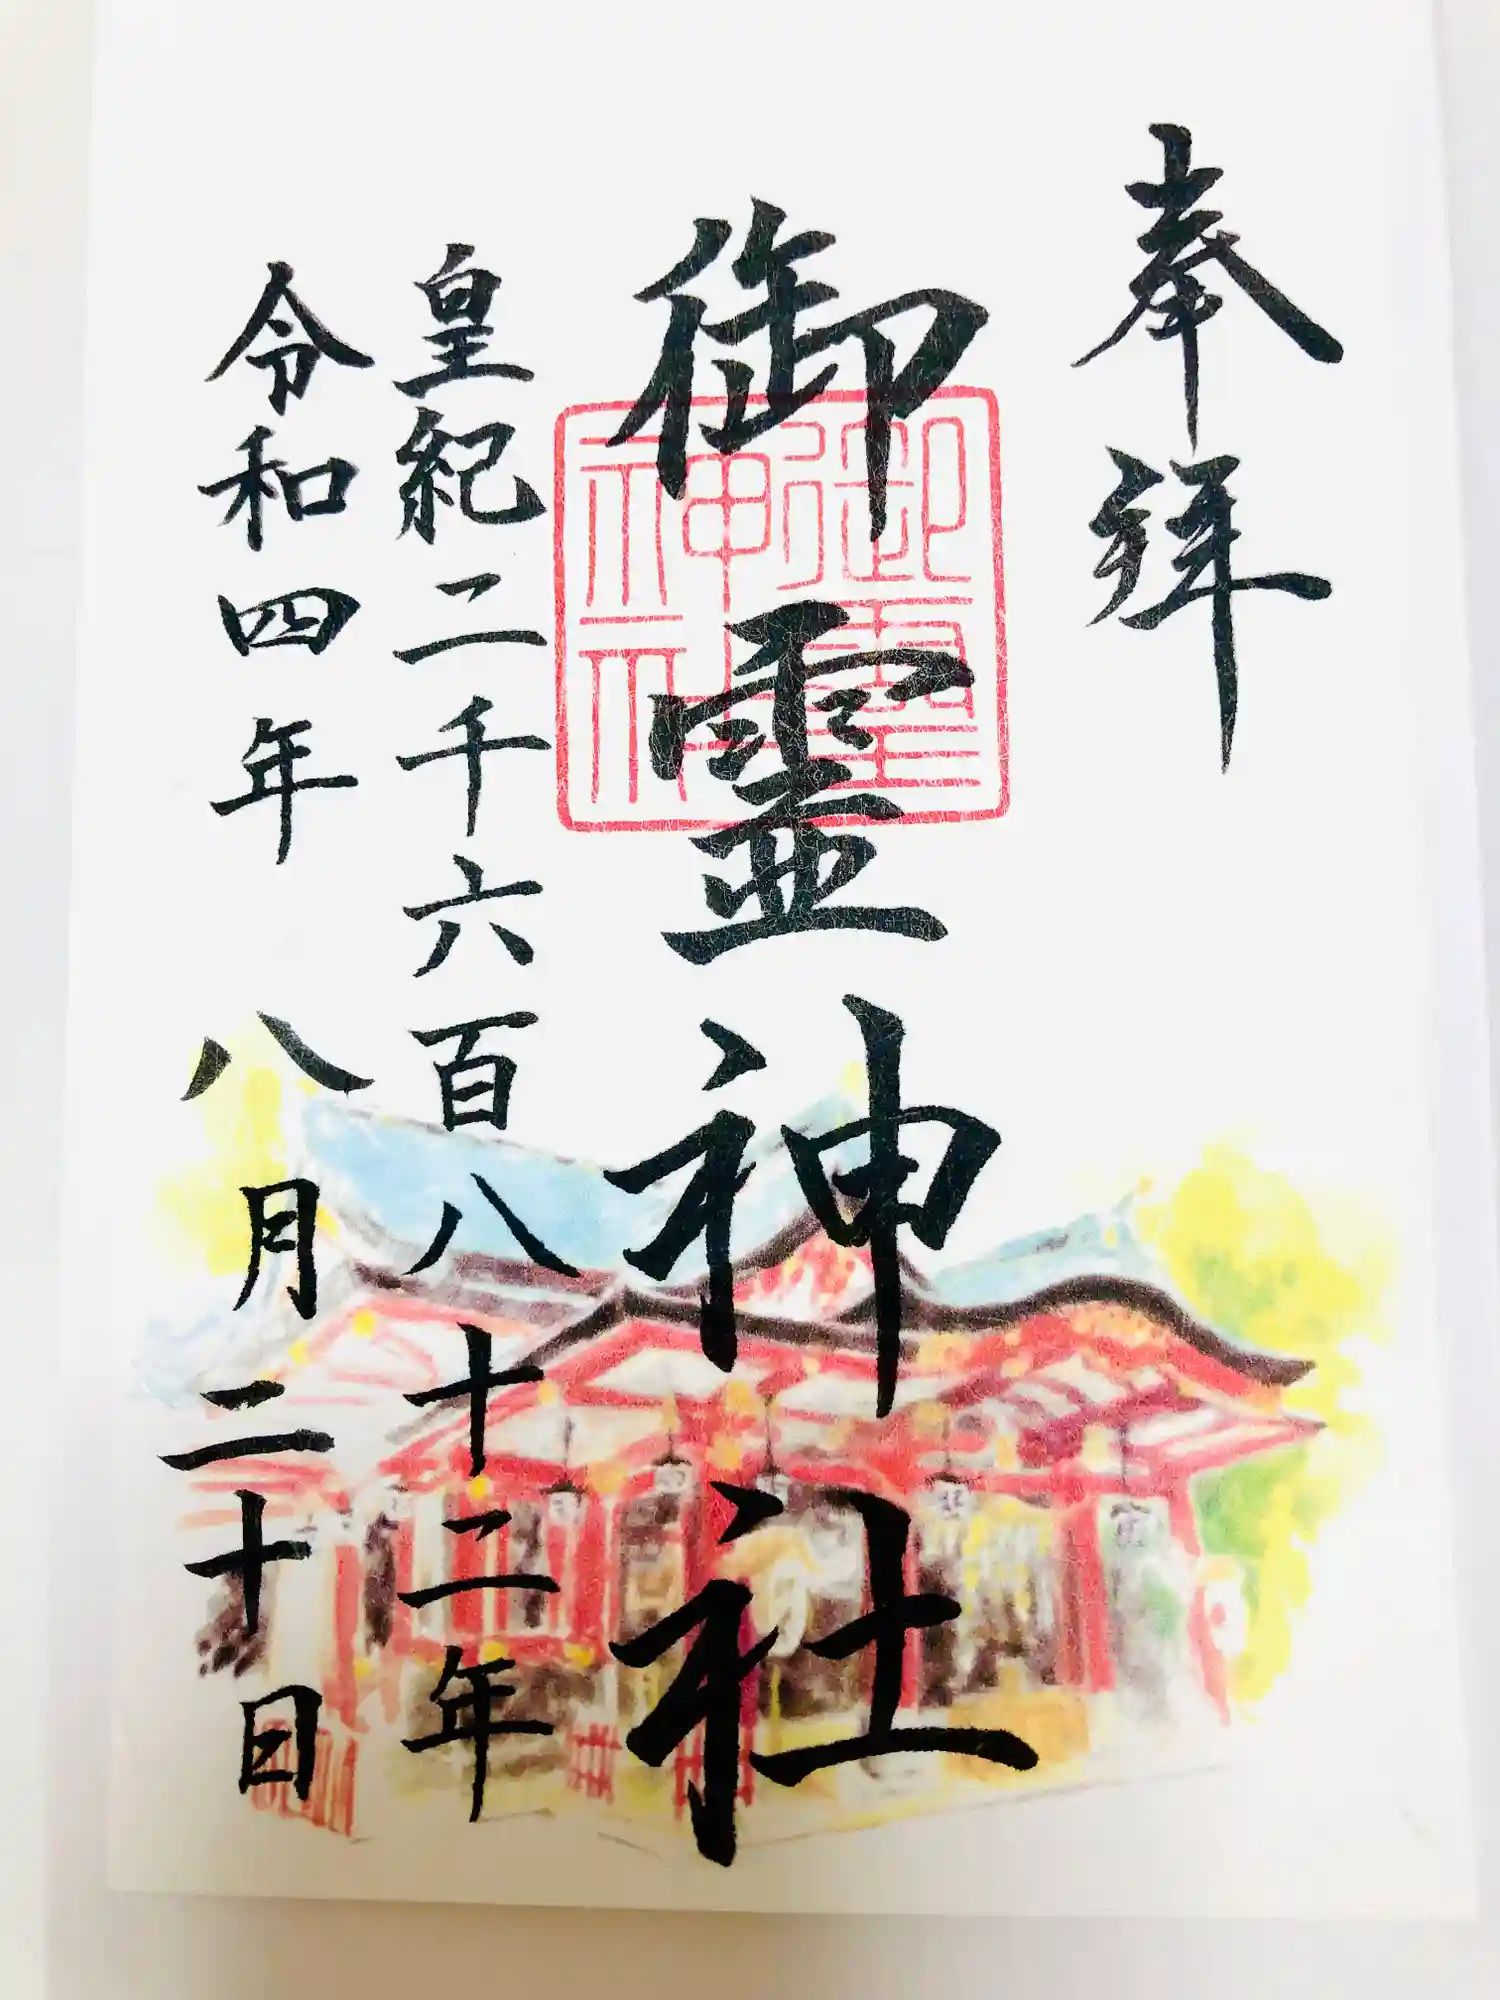 奉拝
御霊神社
御靈
神社
皇紀二千六百八十二年
令和四年 八月二十日